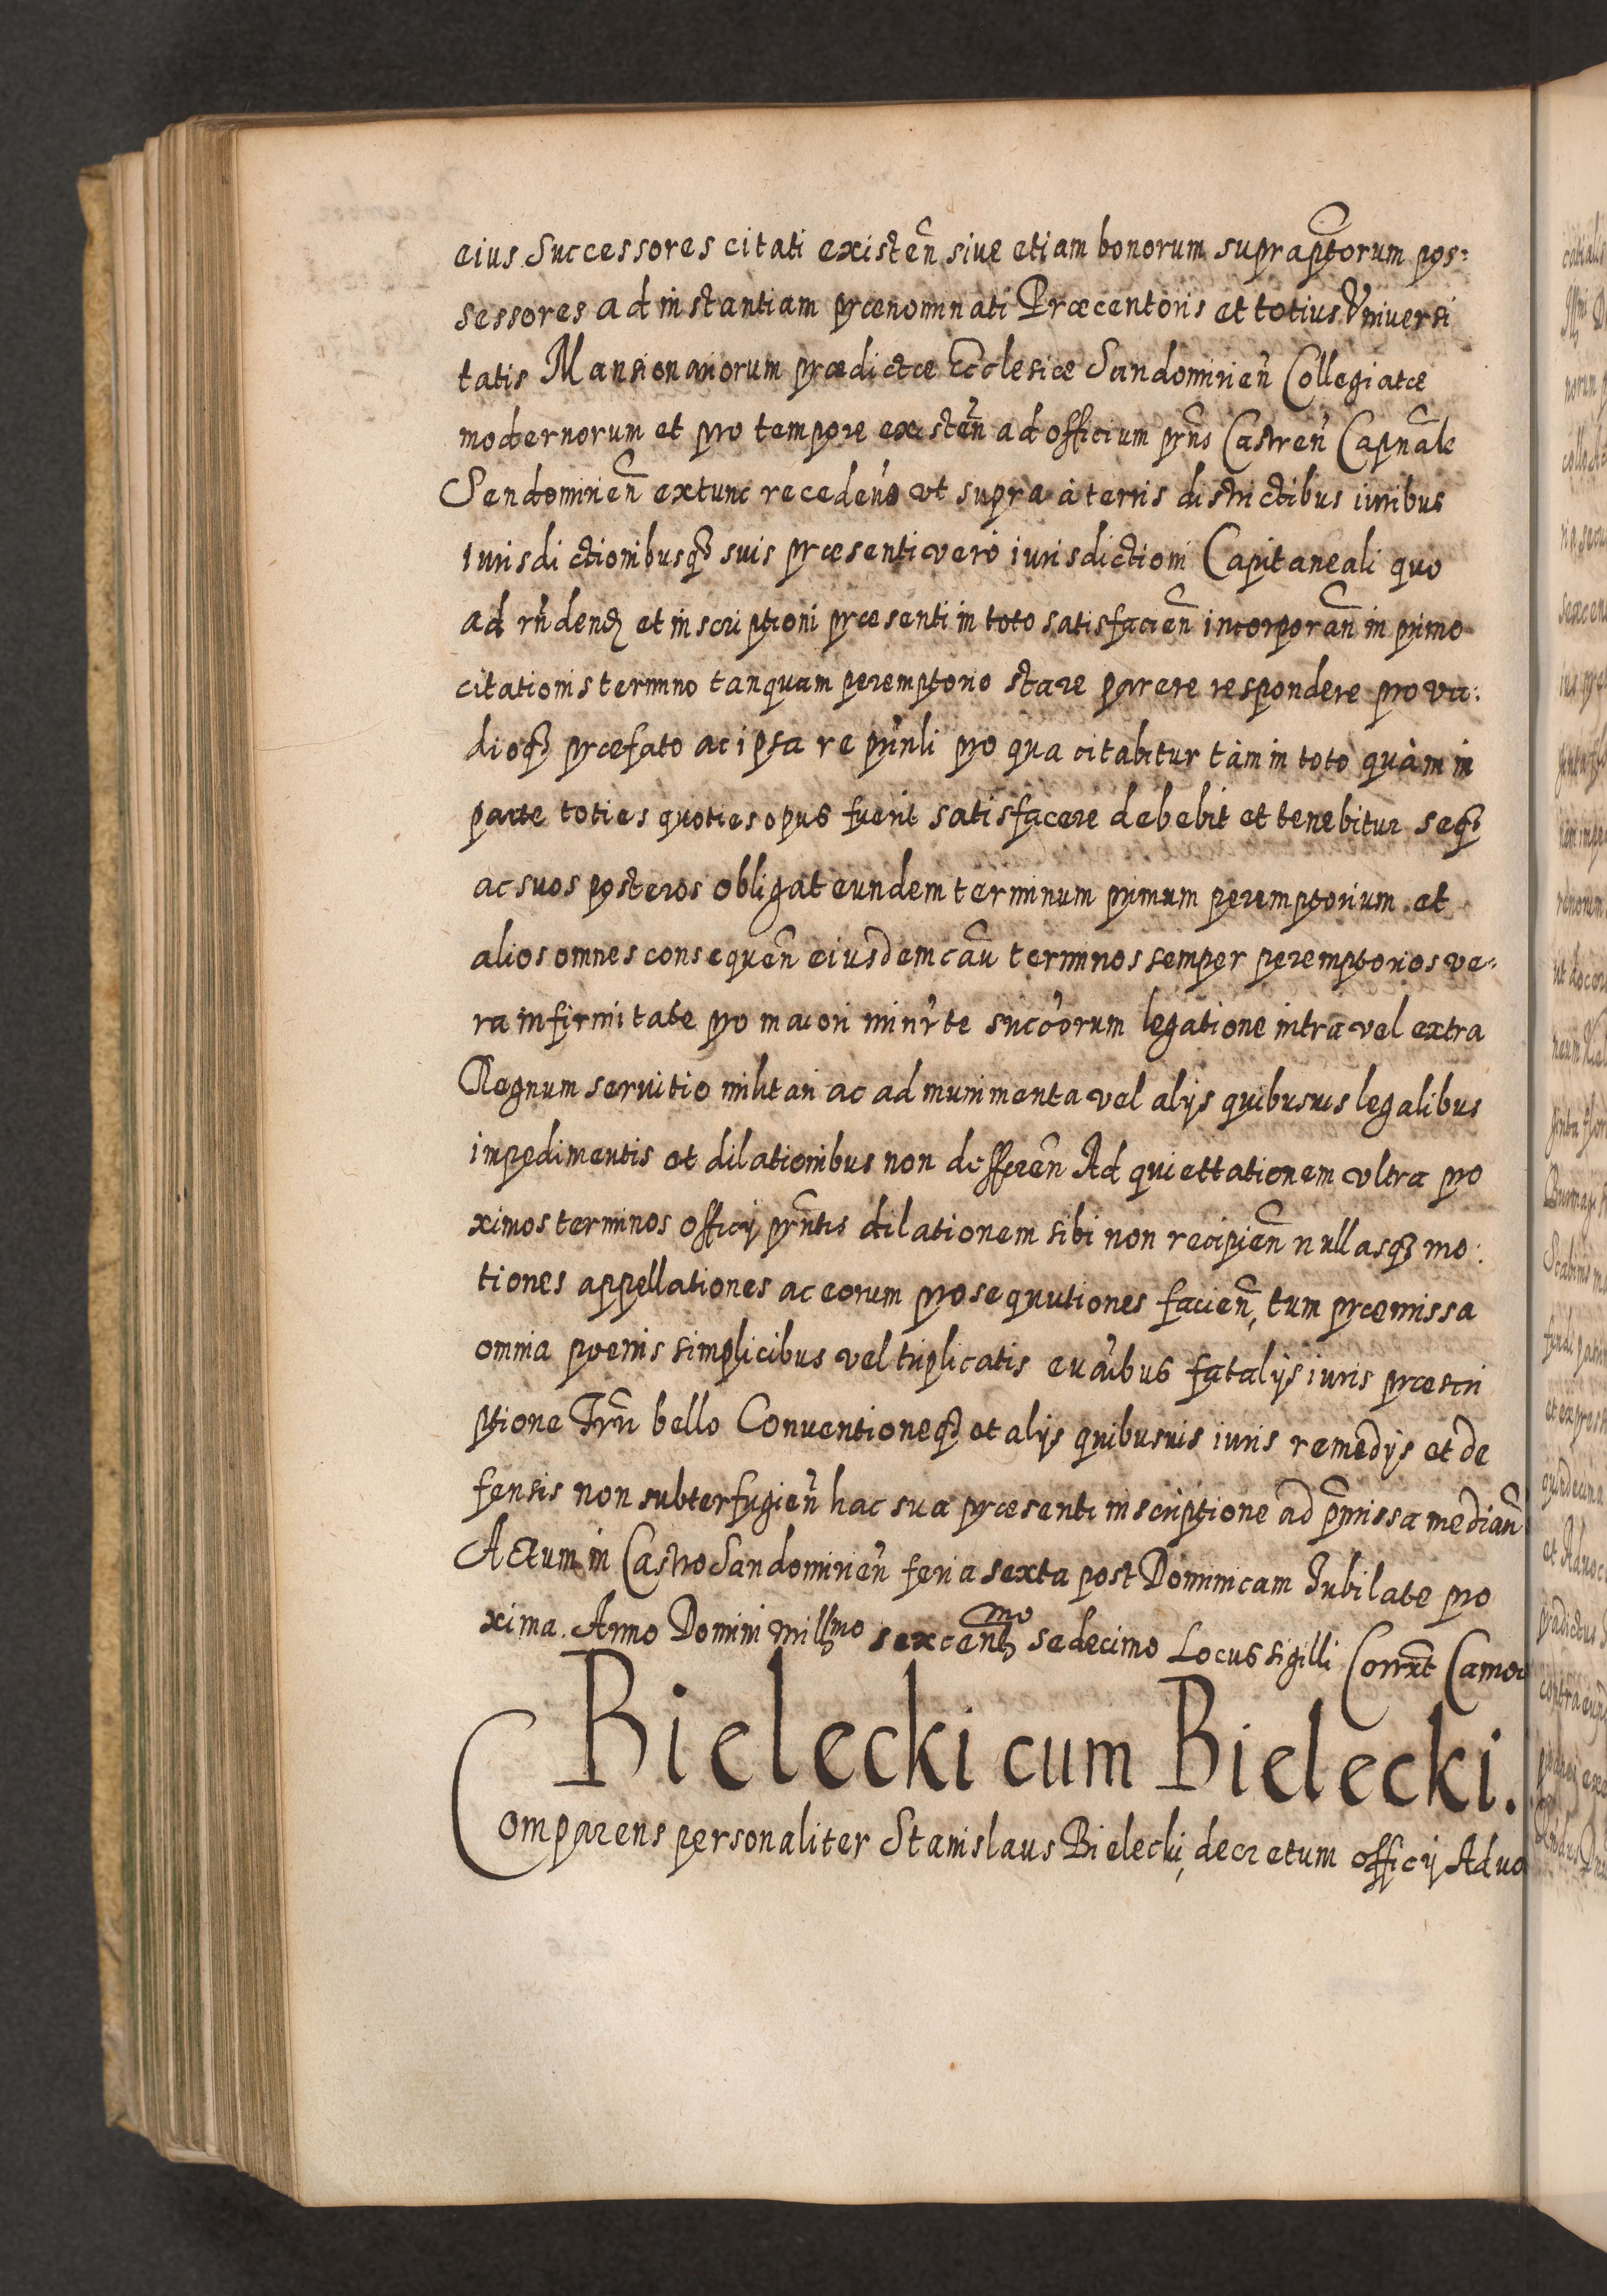 eius Successores citati existen̄ siue etiam bonorum supraptorum pos:
sessores ad instantiam prænominati Præcentoris et totius Vniversi
tatis Mansionariorum prædictæ Ecclesiæ Sandomirien̄ Collegiatæ
modernorum et pro tempore existen̄ ad officium prn̄s Castren̄ Capnāle
Sendomirien̄ extunc recedens vt supra à terris districtibus iuribus
Iurisdictionibusqꝫ suis præsenti vero iurisdictioni Capitaneali quo
ad rn̄dend et inscriptioni præsenti in toto satisfacien̄ incorporan̄ in primo
citationis termino tanquam peremptorio stare parere respondere pro va:
dioqꝫ præfato ac ipsa re prīnli pro qua citabitur tàm in toto quàm in
parte toties quoties opus fuerit satisfacere debebit et tenebitur seqꝫ
ac suos posteros obligat eundem terminum primum peremptorium et
alios omnes consequen̄ eiusdem caū terminos semper peremptorios ve:
ra infirmitate pro maiori minr̄te succ̄orum legatione intra vel extra
Regnum seruitio militari ac ad munimenta vel alijs quibusuis legalibus
impedimentis et dilationibus non differen̄ Ad quiettationem vltra pro
ximos terminos officij prn̄tis dilationem sibi non recipien̄ nullasqꝫ mo:
tiones appellationes ac eorum prosequutiones facien̄, tum præmissa
omnia poenis simplicibus vel triplicatis euāibus fatalijs iuris præscri
ptione Trr̄u bello Conuentioneqꝫ et alijs quibusuis iuris remedijs et de
fensis non subterfugien̄ hac sua præsenti inscriptione ad p̄missa median̄
Actum in Castro Sandomirien̄ feria sexta post Dominicam Jubilate pro
xima. Anno Domini millmo sexcentmo sedecimo Locus sigilli Corrxt
Bielecki cum Bielecki.
Comparens personaliter Stanislaus Bielecki, decretum officij Aduo